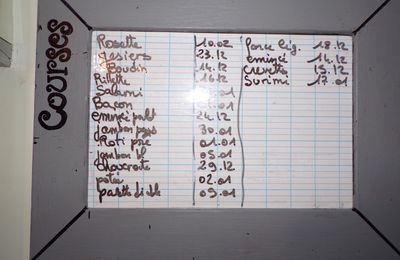 Courses
Rosette 10.02
gesiers 23.12
Boudin 14.12
Rillette 16.12
Salami .01
Bacon .01
emincé poulet 24.12
jambon pays 30.01
Roti porc 01.01
jambon bl 05.01
choucroute 29.12
potée 02.01
palette diable 09.01
Porc Eig. 18.12
Emincé 14.12
crevette 15.12
Surimi 17.01